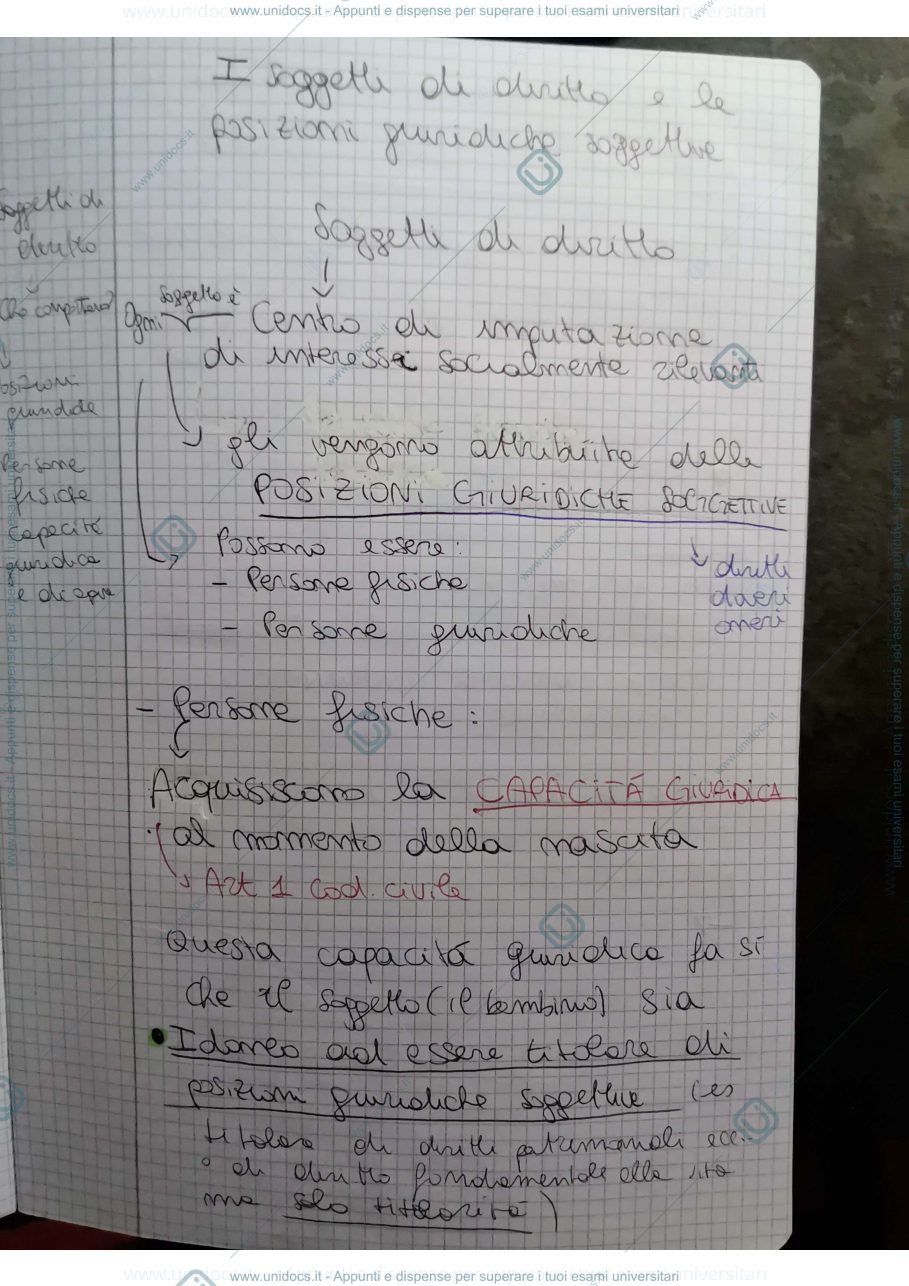 www.unidocs.it - Appunti e dispense per superare i tuoi esami universitari
I soggetti di diritto e le
posizioni giuridiche soggettive
Soggetti di
diritto
Soggetti di diritto
Che comportano?
Ogni soggetto è Centro di imputazione
di interessi socialmente rilevanti
posizioni
giuridiche
gli vengono attribuite delle
POSIZIONI GIURIDICHE SOGGETTIVE
Persone
fisiche
capacità
giuridica
e di agire
Possono essere:
- Persone fisiche
- Persone giuridiche
diritti
doveri
oneri
- Persone fisiche:
Acquisiscono la CAPACITÁ GIURIDICA
al momento della nascita
Art 1 Cod. civile
Questa capacitá giuridica fa sì
che il soggetto (il bambino) sia
• Idoneo ad essere titolare di
posizioni giuridiche soggettive (es
titolare di diritti patrimoniali ecc..
o di diritto fondamentale alla vita
ma solo titolarità)
www.unidocs.it - Appunti e dispense per superare i tuoi esami universitari